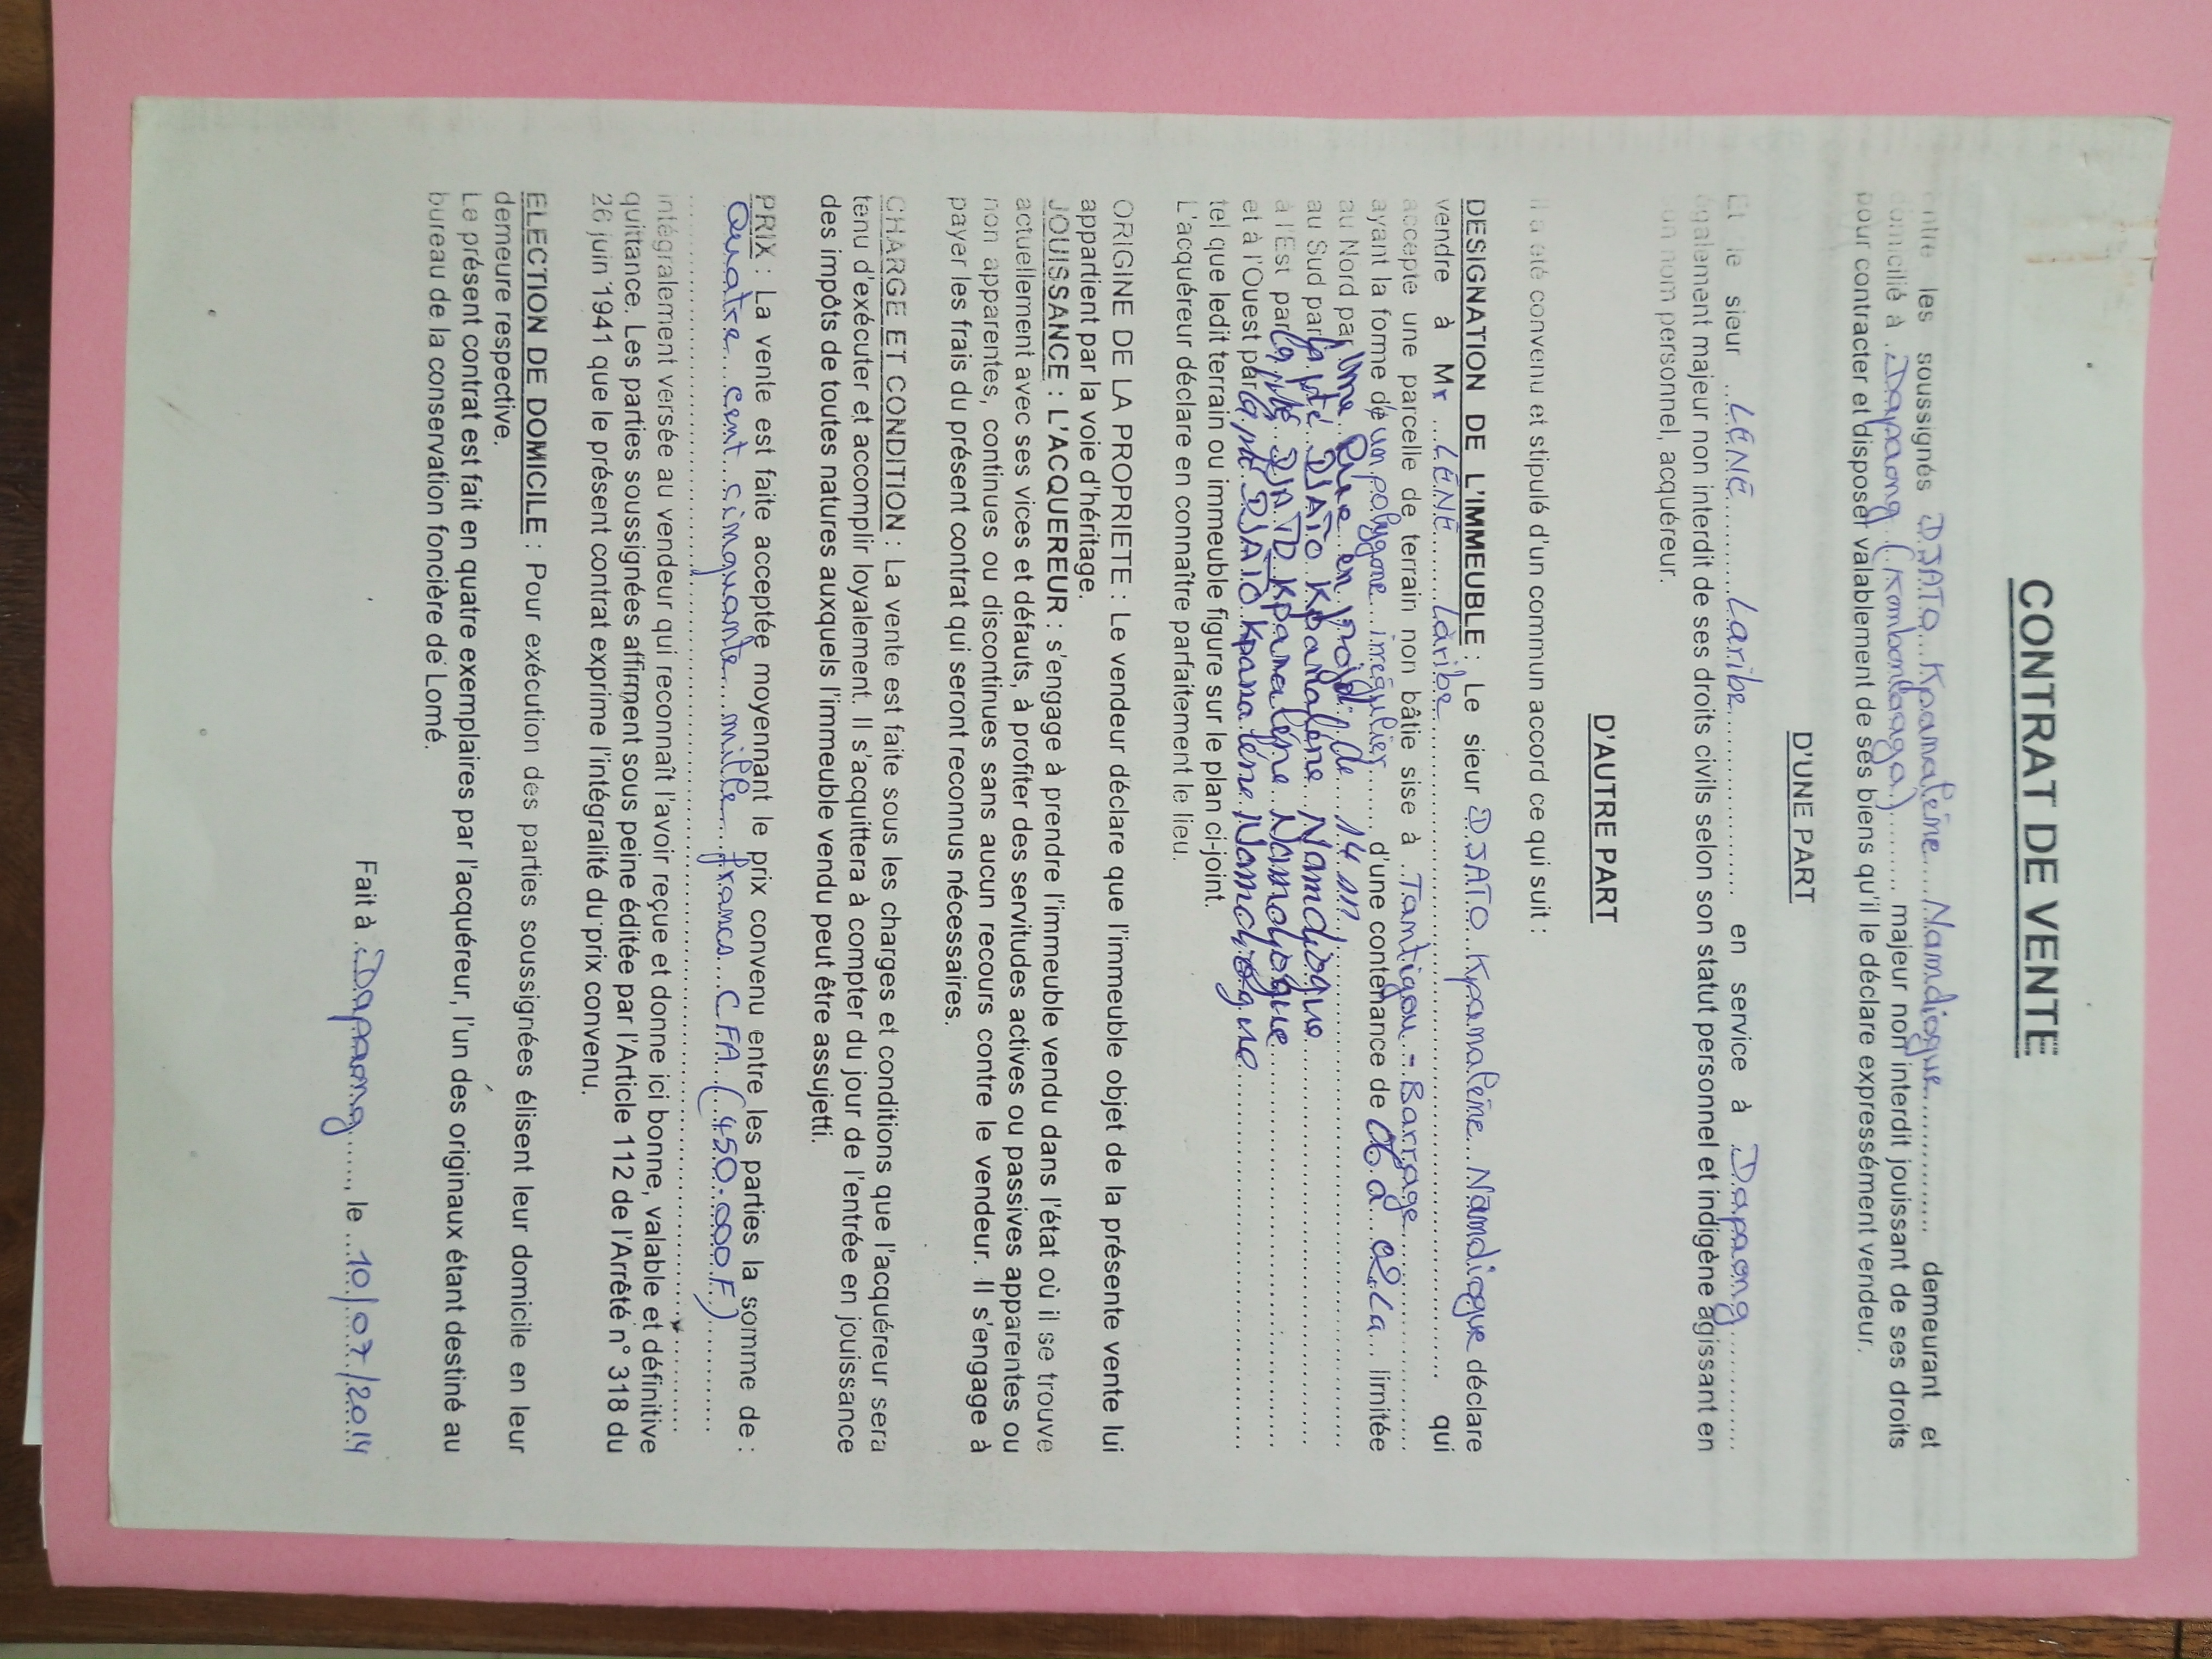 CONTRAT DE VENTE
Entre les soussignés DJATO Kpamalène Namdiogue demeurant et
domicilié à Dapaong (Kombonloaga) majeur non interdit jouissant de ses droits
pour contracter et disposer valablement de ses biens qu'il le déclare expressément vendeur.
D'UNE PART
Et le sieur LENE Laribe en service à Dapaong
également majeur non interdit de ses droits civils selon son statut personnel et indigène agissant en
son nom personnel, acquéreur.
D'AUTRE PART
Il a été convenu et stipulé d'un commun accord ce qui suit :
DESIGNATION DE L'IMMEUBLE : Le sieur DJATO Kpamalène Namdiogue déclare
vendre à Mr LENE Laribe qui
accepte une parcelle de terrain non bâtie sise à Tantigou - Barrage
ayant la forme d'un polygone irrégulier d'une contenance de 2a ca limitée
au Nord par Une Rue en projet de 14 m
au Sud par la pté DJATO Kpamalène Namdiogue
à l'Est par la pté DJATO Kpamalène Namdiogue
et à l'Ouest par la pté DJATO Kpamalène Namdiogue
tel que ledit terrain ou immeuble figure sur le plan ci-joint.
L'acquéreur déclare en connaître parfaitement le lieu.
ORIGINE DE LA PROPRIETE : Le vendeur déclare que l'immeuble objet de la présente vente lui
appartient par la voie d'héritage.
JOUISSANCE : L'ACQUEREUR : s'engage à prendre l'immeuble vendu dans l'état où il se trouve
actuellement avec ses vices et défauts, à profiter des servitudes actives ou passives apparentes ou
non apparentes, continues ou discontinues sans aucun recours contre le vendeur. Il s'engage à
payer les frais du présent contrat qui seront reconnus nécessaires.
CHARGE ET CONDITION : La vente est faite sous les charges et conditions que l'acquéreur sera
tenu d'exécuter et accomplir loyalement. Il s'acquittera à compter du jour de l'entrée en jouissance
des impôts de toutes natures auxquels l'immeuble vendu peut être assujetti.
PRIX : La vente est faite acceptée moyennant le prix convenu entre les parties la somme de :
Quatre cent cinquante mille francs CFA (450.000F)
intégralement versée au vendeur qui reconnaît l'avoir reçue et donne ici bonne, valable et définitive
quittance. Les parties soussignées affirment sous peine éditée par l'Article 112 de l'Arrêté n° 318 du
26 juin 1941 que le présent contrat exprime l'intégralité du prix convenu.
ELECTION DE DOMICILE : Pour exécution des parties soussignées élisent leur domicile en leur
demeure respective.
Le présent contrat est fait en quatre exemplaires par l'acquéreur, l'un des originaux étant destiné au
bureau de la conservation foncière de Lomé.
Fait à Dapaong, le 10/07/2014